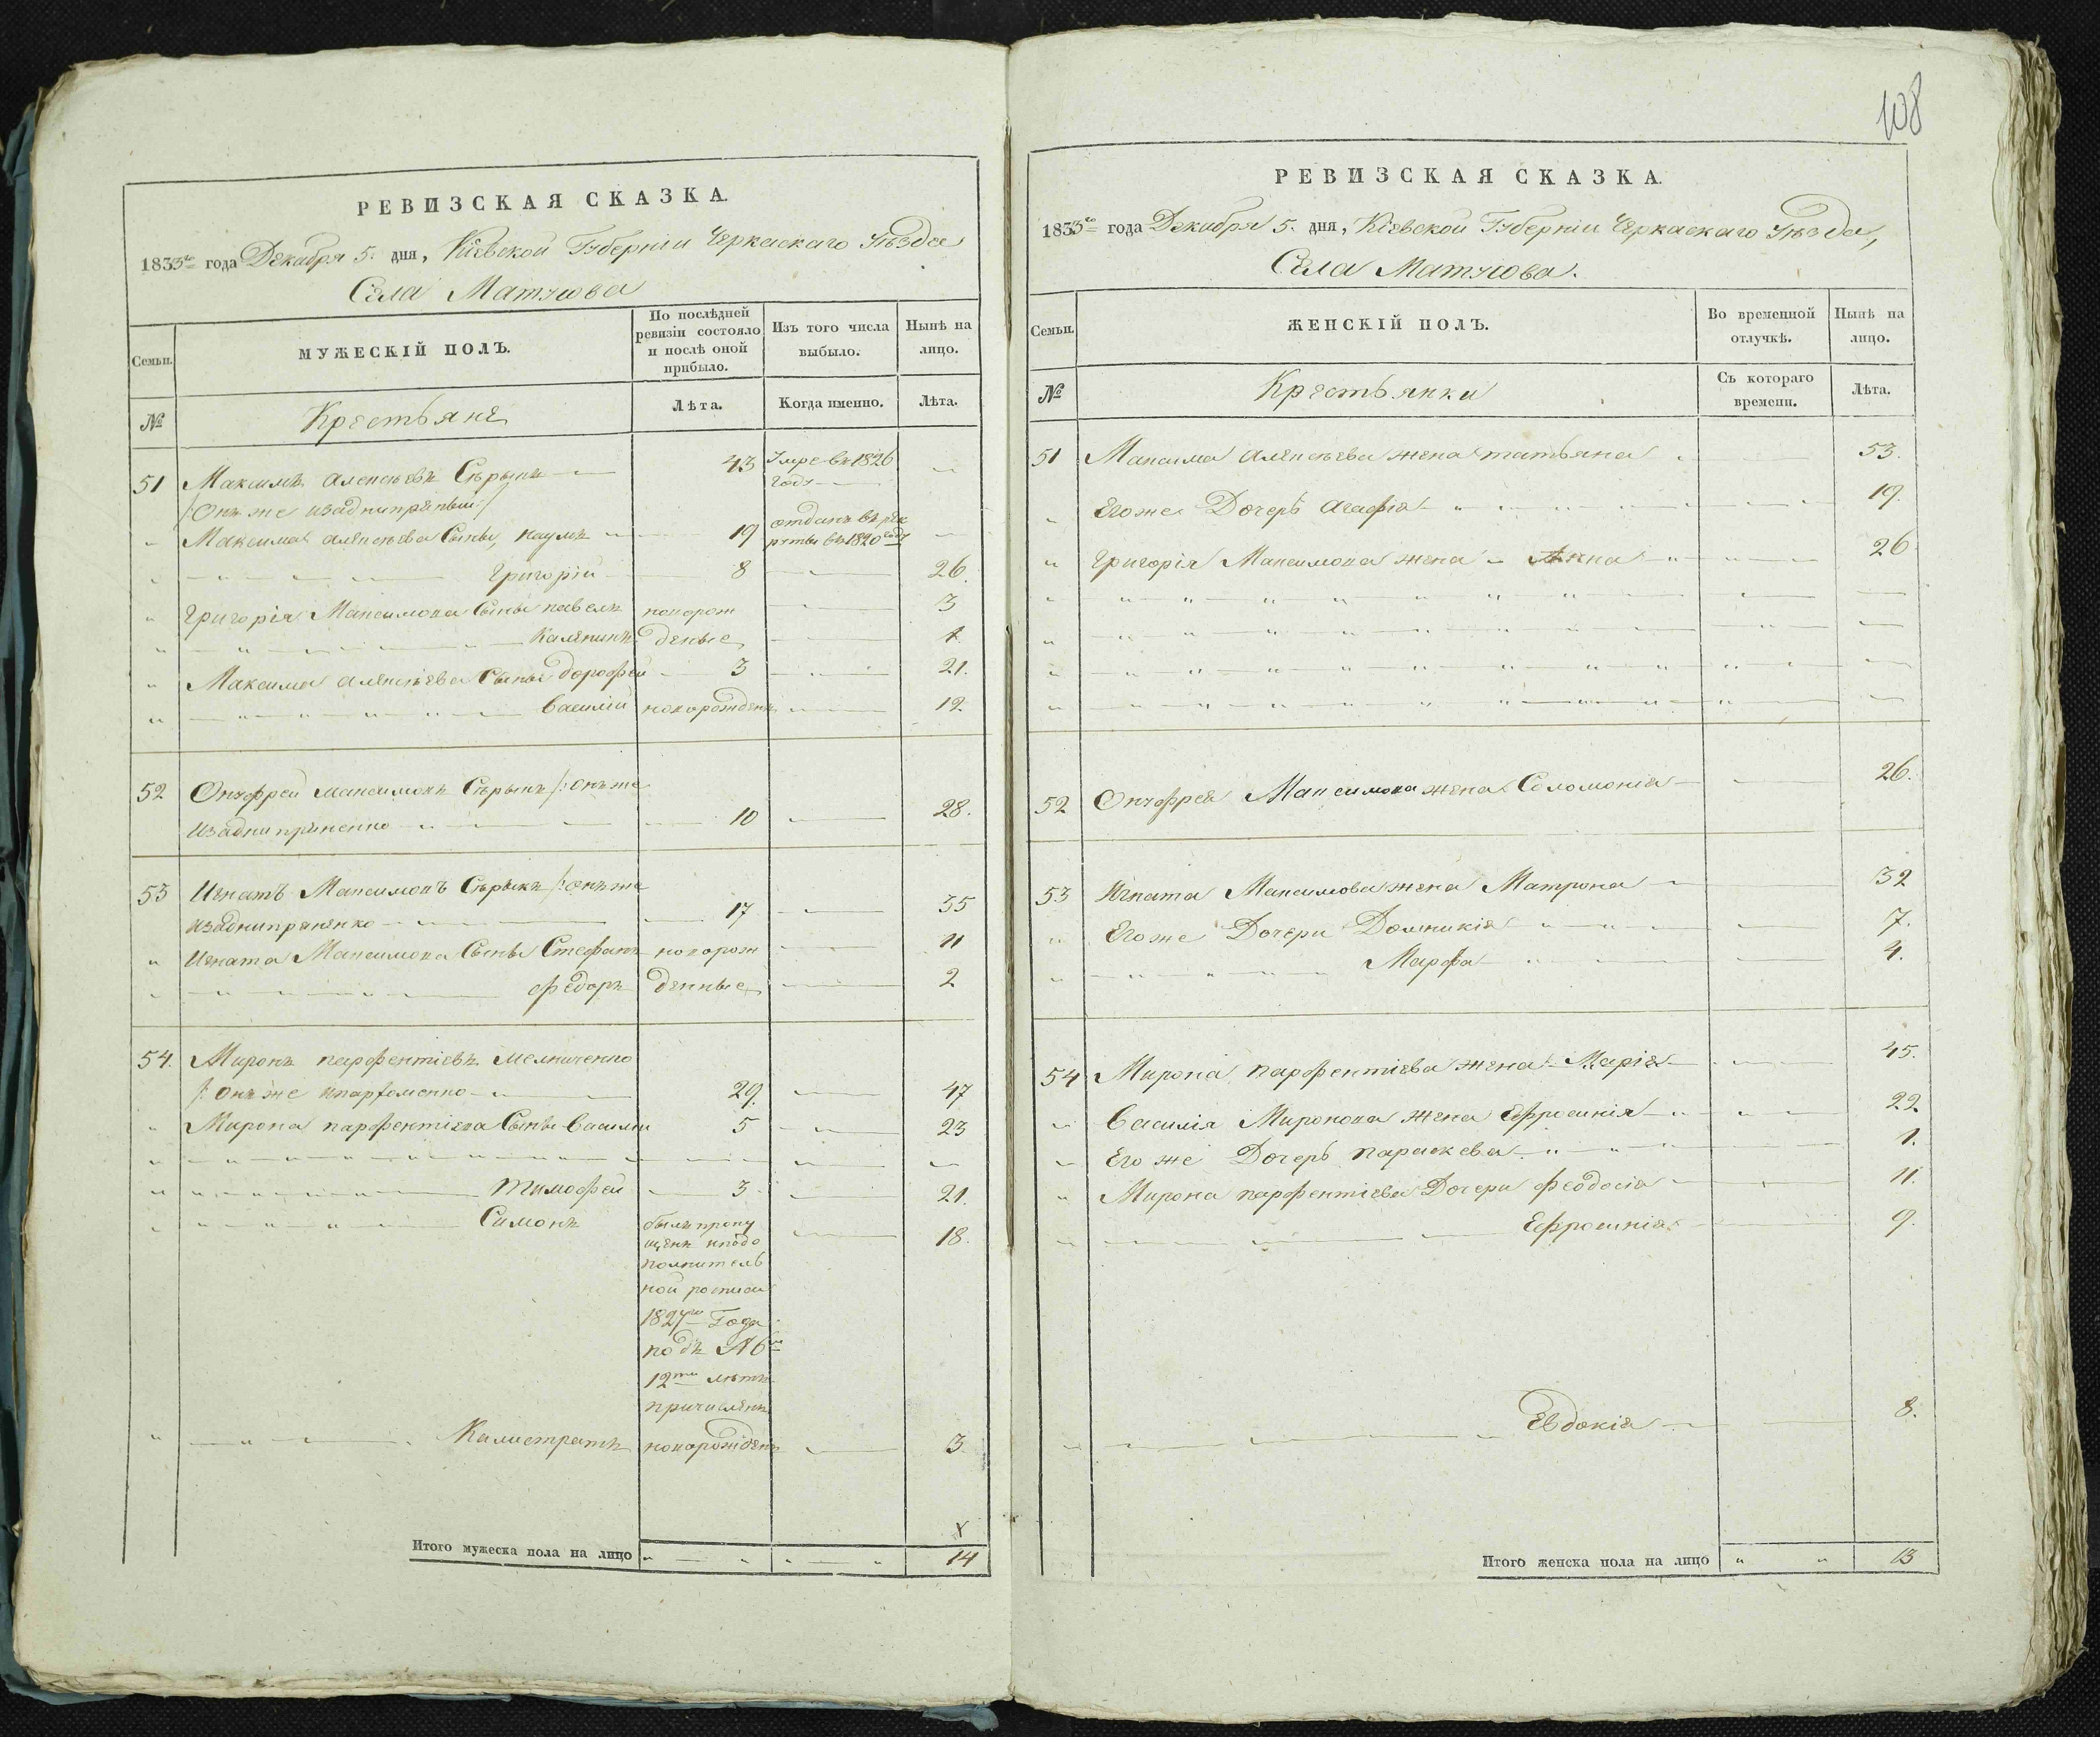 РЕВИЗСКАЯ СКАЗКА.
1833го года Декабря 5. дня, Кіевской Губерніи Черкаскаго Уѣзда
Села Матусова
Семьи.
МУЖЕСКІЙ ПОЛЪ.
По послѣдней ревизіи состояло и послѣ оной прибыло.
Изъ того числа выбыло.
Нынѣ на лицо.
№
Крестьяне
Лѣта.
Когда именно.
Лѣта.
51 Максимъ Алексѣевъ Сѣрыкъ 43 Умре въ 1826
/:Онъ же году
" Максима Алексѣева Сыны, Наумъ 19 отданъ въ рек
руты въ 1820 году
" Григорій 8 26.
" Григорія Максимова Сыны Павелъ новорож 3
" Калѣникъ денные 1
" Максима Алексѣева Сыны Дорофѣй 3 21.
" Василій новорожденъ 12.
52 Онуфрей Максимовъ Сѣрыкъ /:онъ же
10 28.
53 Игнатъ Максимовъ Сѣрыкъ /:онъ же
17 35
" Игната Максимова Сыны Стефанъ новорож 11
" Федоръ денные 2
54. Миронъ Парфентіевъ Мелниченко
/:Онъ же 29. 47
" Мирона Парфентіева Сыны Василій 5 23
" Тимофей 3 21.
" Симонъ былъ пропу 18.
щенъ и по до
полнитель
ной росписи
1827го Года
подъ №6
12ти лѣтъ
причисленъ
" Калистратъ новорожденъ 3.
Итого мужеска пола на лицо " " " " 14
108
РЕВИЗСКАЯ СКАЗКА.
1833го года Декабря 5. дня, Кіевской Губерніи Черкаскаго Уѣзда,
Села Матусова.
Семьи.
ЖЕНСКІЙ ПОЛЪ.
Во временной отлучкѣ.
Нынѣ на лицо.
№
Крестьянки
Съ котораго времени.
Лѣта.
51 Максима Алексѣева жена Татьяна 53.
" Его же Дочерь Агафія 19.
" Григорія Максимова жена Анна 26
52 Онуфрея Максимова жена Соломонія 26.
53 Игната Максимова жена Матрона 32
" Его же Дочери Домникія 7.
" Марфа 4.
54 Мирона Парфентіева жена Марія 45.
" Василія Миронова жена Ефросинія 22.
" Его же Дочерь Параскева 1.
" Мирона Парфентіева Дочери Феодосія 11.
" Ефросинія 9.
" Евдокія 8.
Итого женска пола на лицо " " 13